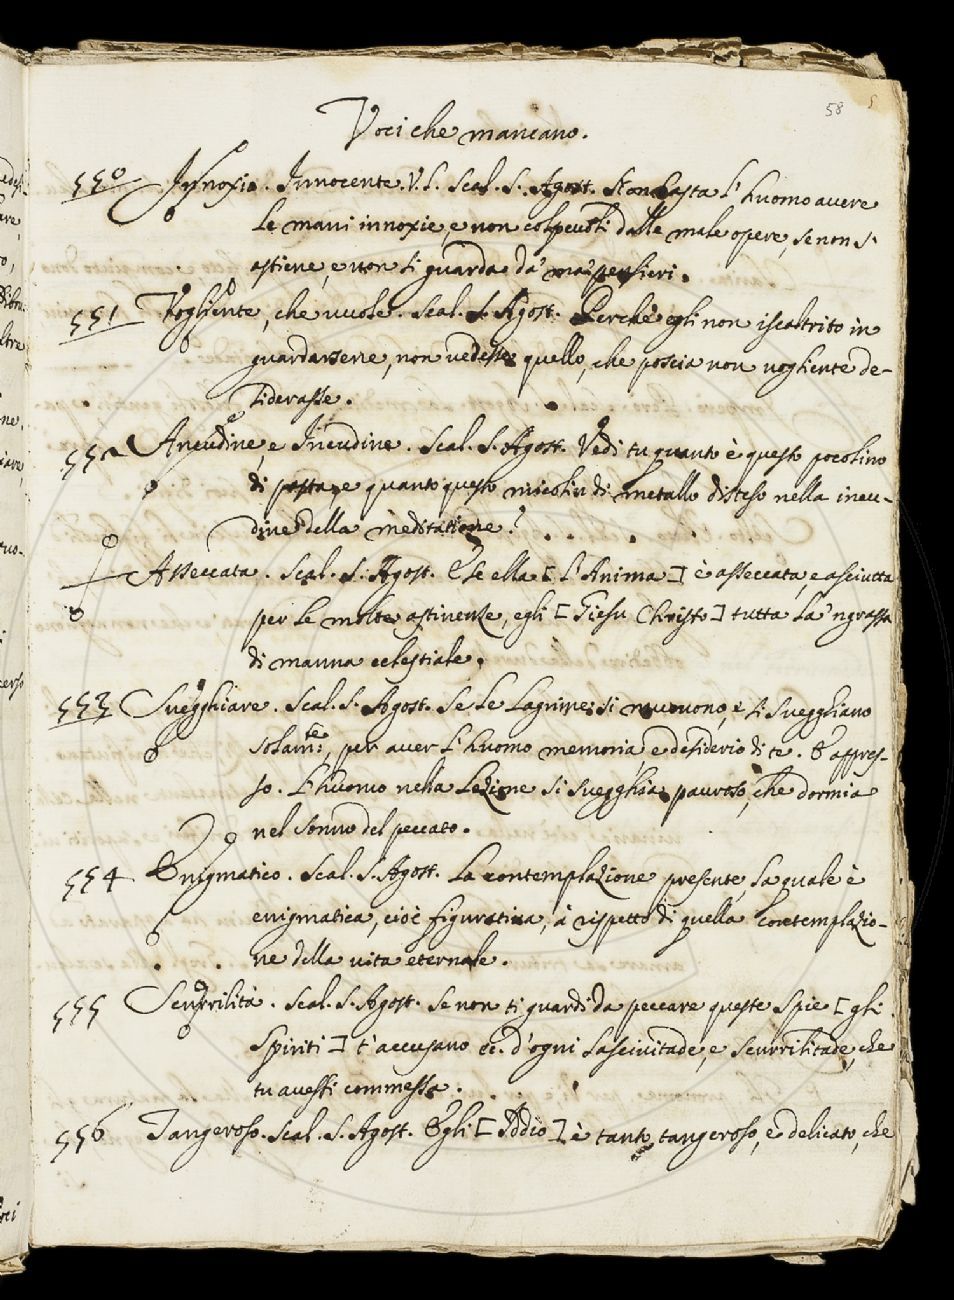 58
Voci che mancano.
550 Innoxio. Innocente. V.L. Scal. S. Agost. Non basta l'huomo avere
le mani innoxie, e non colpevoli dalle male opere, se non s'
astiene, e non si guarda da' mai pensieri.
551 Vogliente, che vuole. Scal. S. Agost. Perchè egli non iscaltrito in
guardarsene, non vedesse quello, che poscia non vogliente de-
siderasse.
552 Ancudine, e Incudine. Scal. S. Agost. Vedi tu quanto è questo pocolino
di pasta, e quanto questo micolin di metallo disteso nella incu-
dine della meditatione?
Asseccata. Scal. S. Agost. E se ella [L'Anima] è asseccata, e asciutta
per le molte astinenze, egli [Giesu Christo] tutta la 'ngrassa
di manna celestiale.
553 Svegghiare. Scal. S. Agost. Se le lagrime si muovono, e si svegghiano
solam.te, per aver l'huomo memoria, e desiderio di te. E appres-
so. L'huomo nella Lezione si svegghia pauroso, che dormia
nel sonno del peccato.
554 Enigmatico. Scal. S. Agost. La contemplazione presente, la quale è
enigmatica, cioè figurativa, a rispetto di quella contemplazio-
ne della vita eternale.
555 Scurrilità. Scal. S. Agost. Se non ti guardi da peccare queste spie [gli
Spiriti] t'accusano ec. d'ogni lascivitade, e scurrilitade, che
tu avessi commessa.
556 Tangeroso. Scal. S. Agost. Egli [Iddio] è tanto tangeroso, e delicato, che